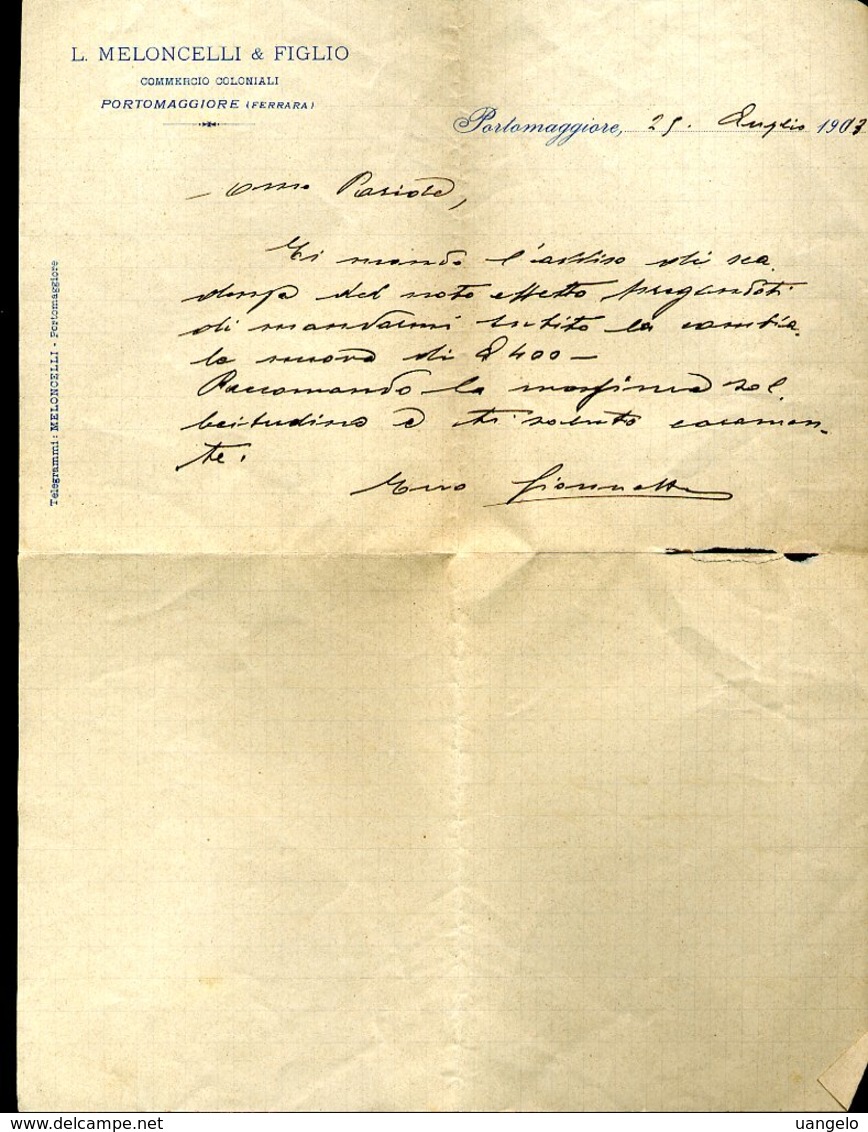 L. MELONCELLI & FIGLIO
COMMERCIO COLONIALI
PORTOMAGGIORE (FERRARA)
Portomaggiore, 25. Luglio 1903
Ti mando l'avviso di sca
denza del noto effetto pregandoti
di mandarmi subito la cambia
le nuova di £ 400 —
Raccomando la massima sol
lecitudine e ti saluto caramen-
te.
Telegrammi: MELONCELLI - Portomaggiore
www.delcampe.net
uangelo